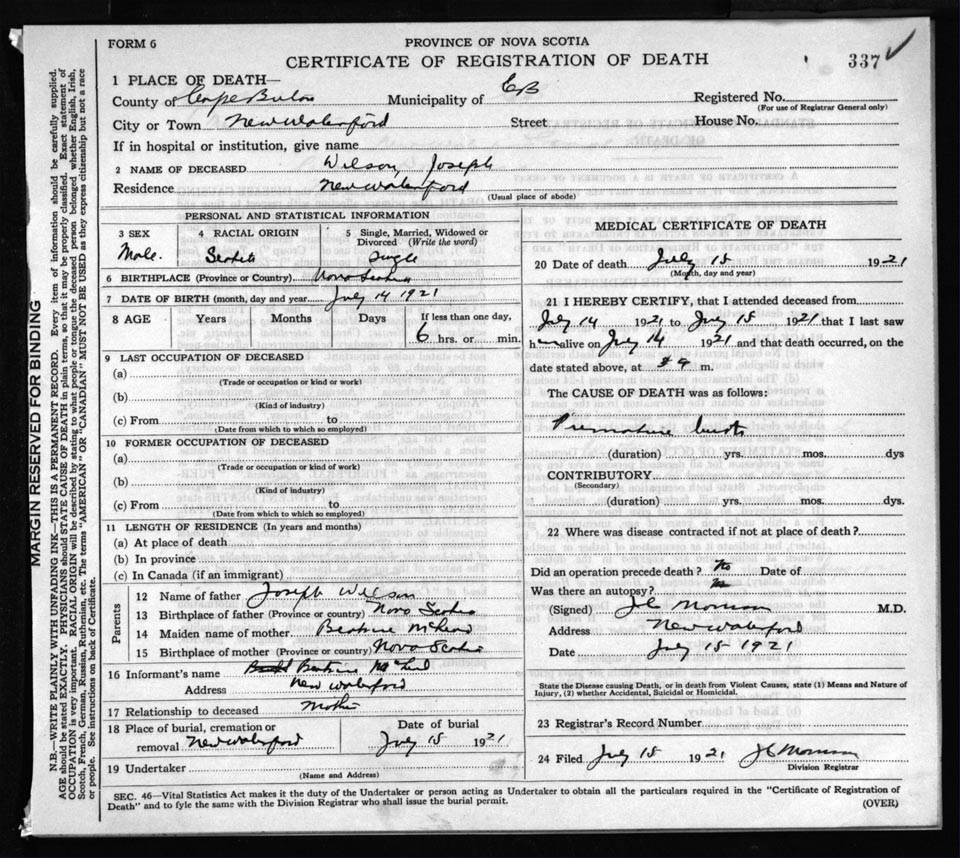 FORM 6
PROVINCE OF NOVA SCOTIA
CERTIFICATE OF REGISTRATION OF DEATH
337
1 PLACE OF DEATH—
County of Cape Breton Municipality of CB Registered No.
(For use of Registrar General only)
City or Town New Waterford Street House No.
If in hospital or institution, give name
2 NAME OF DECEASED Wilson, Joseph
Residence New Waterford
(Usual place of abode)
PERSONAL AND STATISTICAL INFORMATION
3 SEX
Male.
4 RACIAL ORIGIN
Scotch
5 Single, Married, Widowed or Divorced (Write the word)
Single
6 BIRTHPLACE (Province or Country) Nova Scotia
7 DATE OF BIRTH (month, day and year July 14 1921
8 AGE Years Months Days If less than one day,
6 hrs. or min.
9 LAST OCCUPATION OF DECEASED
(a)
(Trade or occupation or kind or work)
(b)
(Kind of industry)
(c) From to
(Date from which to which so employed)
10 FORMER OCCUPATION OF DECEASED
(a)
(Trade or occupation or kind or work)
(b)
(Kind of industry)
(c) From to
(Date from which to which so employed)
11 LENGTH OF RESIDENCE (In years and months)
(a) At place of death
(b) In province
(c) In Canada (if an immigrant)
Parents
12 Name of father Joseph Wilson
13 Birthplace of father (Province or country) Nova Scotia
14 Maiden name of mother Beatrice McLeod
15 Birthplace of mother (Province or country) Nova Scotia
16 Informant's name Beatrice McLeod
Address New Waterford
17 Relationship to deceased Mother
18 Place of burial, cremation or removal New Waterford
Date of burial
July 15 1921
19 Undertaker
(Name and Address)
MEDICAL CERTIFICATE OF DEATH
20 Date of death July 15 1921
(Month, day and year)
21 I HEREBY CERTIFY, that I attended deceased from
July 14 1921 to July 15 1921 that I last saw
him alive on July 14 1921 and that death occurred, on the
date stated above, at m.
The CAUSE OF DEATH was as follows:
Premature birth
(duration) yrs. mos. dys
CONTRIBUTORY
(Secondary)
(duration) yrs. mos. dys.
22 Where was disease contracted if not at place of death?
Did an operation precede death? No Date of
Was there an autopsy? No
(Signed) M.D.
Address New Waterford
Date July 15 1921
State the Disease causing Death, or in death from Violent Causes, state (1) Means and Nature of
Injury, (2) whether Accidental, Suicidal or Homicidal.
23 Registrar's Record Number
24 Filed July 15 1921
Division Registrar
SEC. 46—Vital Statistics Act makes it the duty of the Undertaker or person acting as Undertaker to obtain all the particulars required in the "Certificate of Registration of
Death" and to fyle the same with the Division Registrar who shall issue the burial permit.
(OVER)
MARGIN RESERVED FOR BINDING
N.B.—WRITE PLAINLY WITH UNFADING INK—THIS IS A PERMANENT RECORD. Every item of information should be carefully supplied.
AGE should be stated EXACTLY. PHYSICIANS should STATE CAUSE OF DEATH in plain terms, so that it may be properly classified. Exact statement of
OCCUPATION is very important. RACIAL ORIGIN will be described by stating to what people or tongue the deceased person belonged whether English, Irish,
Scotch, French, German, Russian, Ruthenian, etc. The terms "AMERICAN" OR "CANADIAN" MUST NOT BE USED as they express citizenship but not a race
or people. See instructions on back of Certificate.